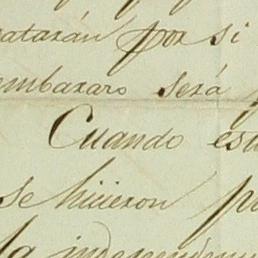 atarán por si
embararo será
Cuando est
se hiiieron p
la independen